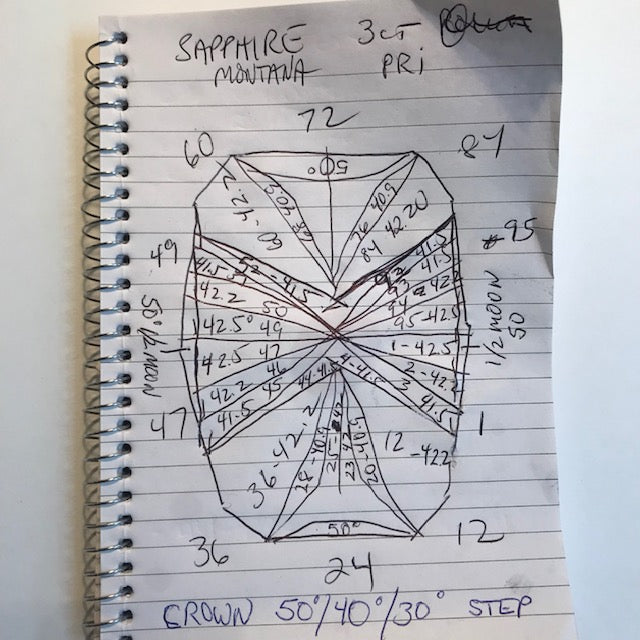 SAPPHIRE 3CT
MONTANA PRI
72
60 87
50°
60-42.2 68 40.9 76 40.9 84 42.20
49 95
52-41.5 92 41.5
41.5 93 41.5
42.2 50 94 42.2
42.5° 49 95-42.5
50° 1/2 MOON 1/2 MOON 50
42.5 47 1-42.5
42.2 46 2-42.2
41.5 45 3 41.5
44-41.5 4-41.5
47 1
36-42.2 28-40.9 25- 23 42 20-40.9 12 -42.2
50°
36 12
24
CROWN 50°/40°/30° STEP